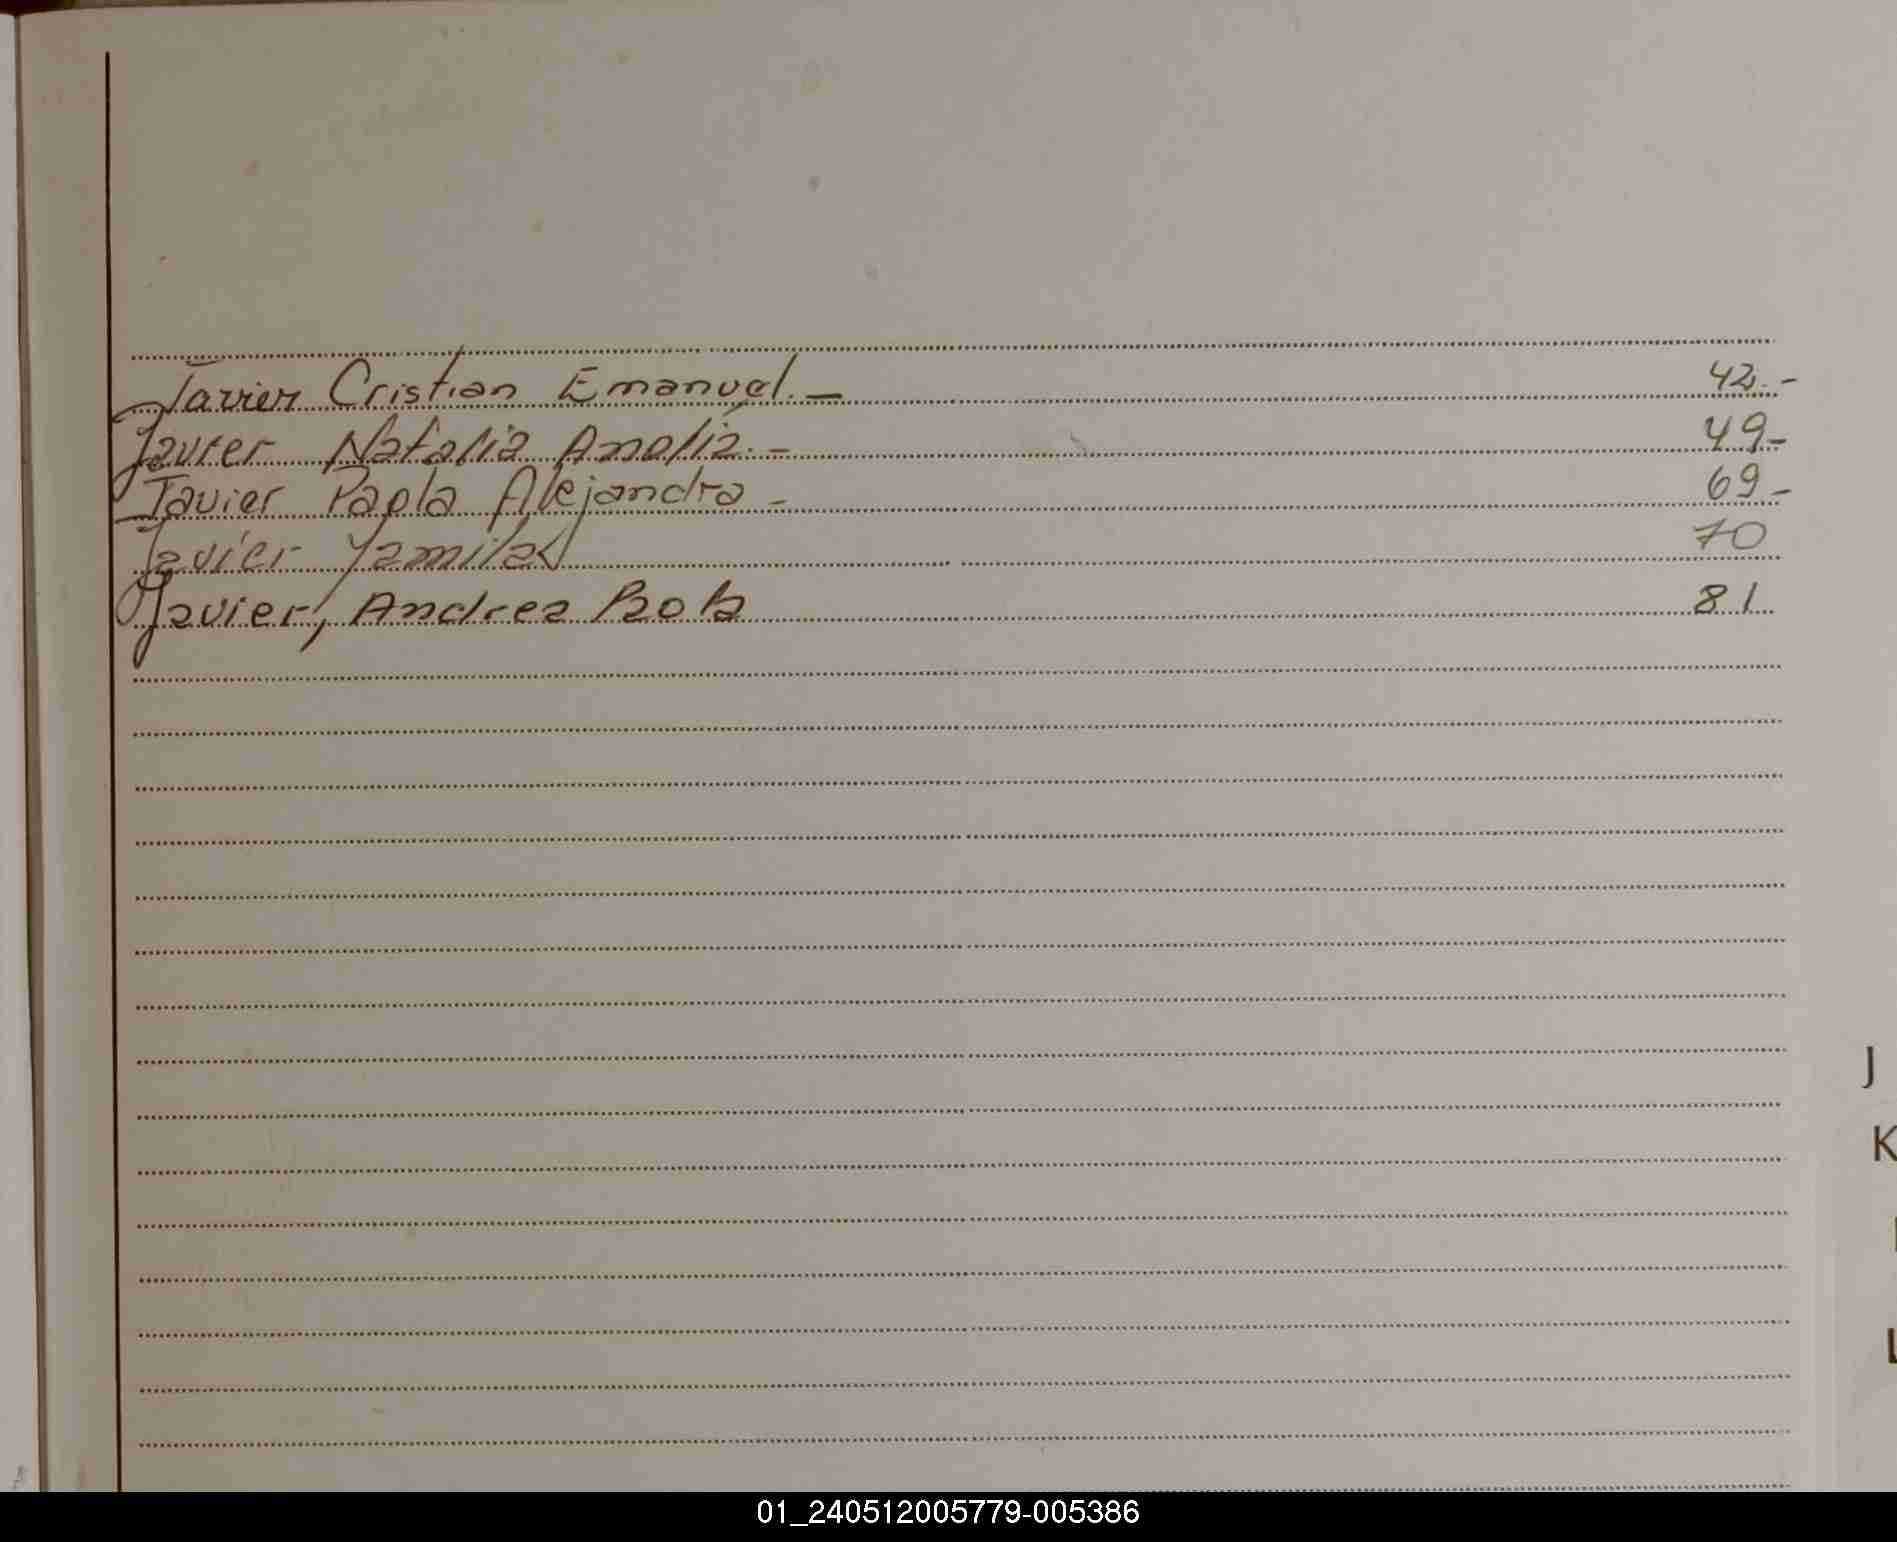 Javier Cristian Emanuel.— 42.-
Javier Natalia Analía.- 49-
Javier Paola Alejandra - 69-
Javier Yamila 70
Javier, Andrea Paola 81
J
K
L
01_240512005779-005386